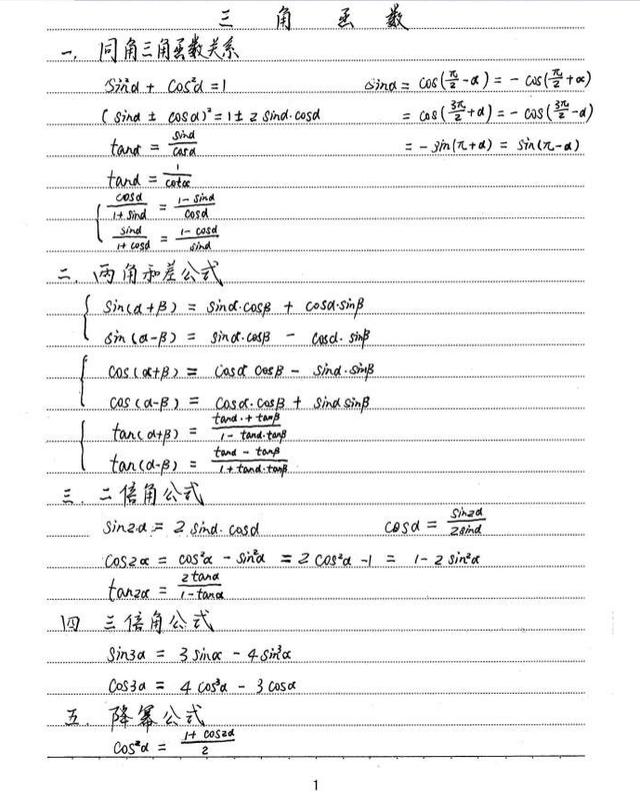 三 角 函 数
一. 同角三角函数关系
sin²α + cos²α = 1    sinα = cos(π/2 - α) = - cos(π/2 + α)
(sinα ± cosα)² = 1 ± 2 sinα·cosα    = cos(3π/2 + α) = - cos(3π/2 - α)
tanα = sinα/cosα    = - sin(π + α) = sin(π - α)
tanα = 1/cotα
cosα/(1 + sinα) = (1 - sinα)/cosα
sinα/(1 + cosα) = (1 - cosα)/sinα
二. 两角和差公式
sin(α + β) = sinα·cosβ + cosα·sinβ
sin(α - β) = sinα·cosβ - cosα·sinβ
cos(α + β) = cosα cosβ - sinα·sinβ
cos(α - β) = cosα·cosβ + sinα sinβ
tan(α + β) = (tanα· + tanβ)/(1 - tanα·tanβ)
tan(α - β) = (tanα - tanβ)/(1 + tanα·tanβ)
三. 二倍角公式
sin2α = 2 sinα·cosα    cosα = sin2α/2sinα
cos2α = cos²α - sin²α = 2 cos²α - 1 = 1 - 2 sin²α
tan2α = 2tanα/(1 - tanα)
四 三倍角公式
sin3α = 3 sinα - 4 sin³α
cos3α = 4 cos³α - 3 cosα
五. 降幂公式
cos²α = (1 + cos2α)/2
1